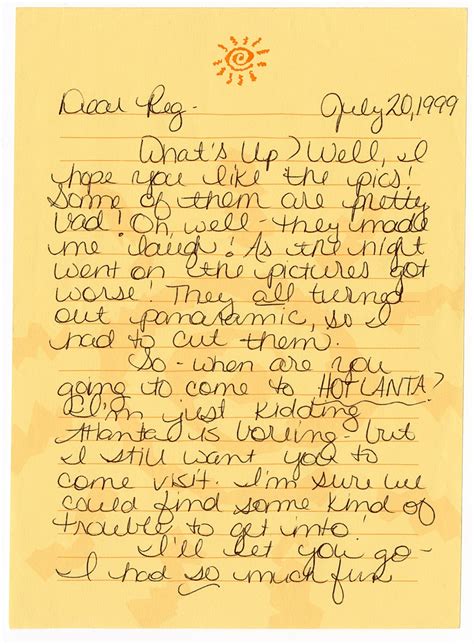 Dear Reg- July 20, 1999
What's Up? Well, I
hope you like the pics!
Some of them are pretty
bad! Oh, well - they made
me laugh! As the night
went on the pictures got
worse! They all turned
out panaramic, so I
had to cut them.
So - when are you
going to come to HOTLANTA?
I'm just kidding
Atlanta is boring - but
I still want you to
come visit. I'm sure we
could find some kind of
trouble to get into!
I'll let you go -
I had so much fun